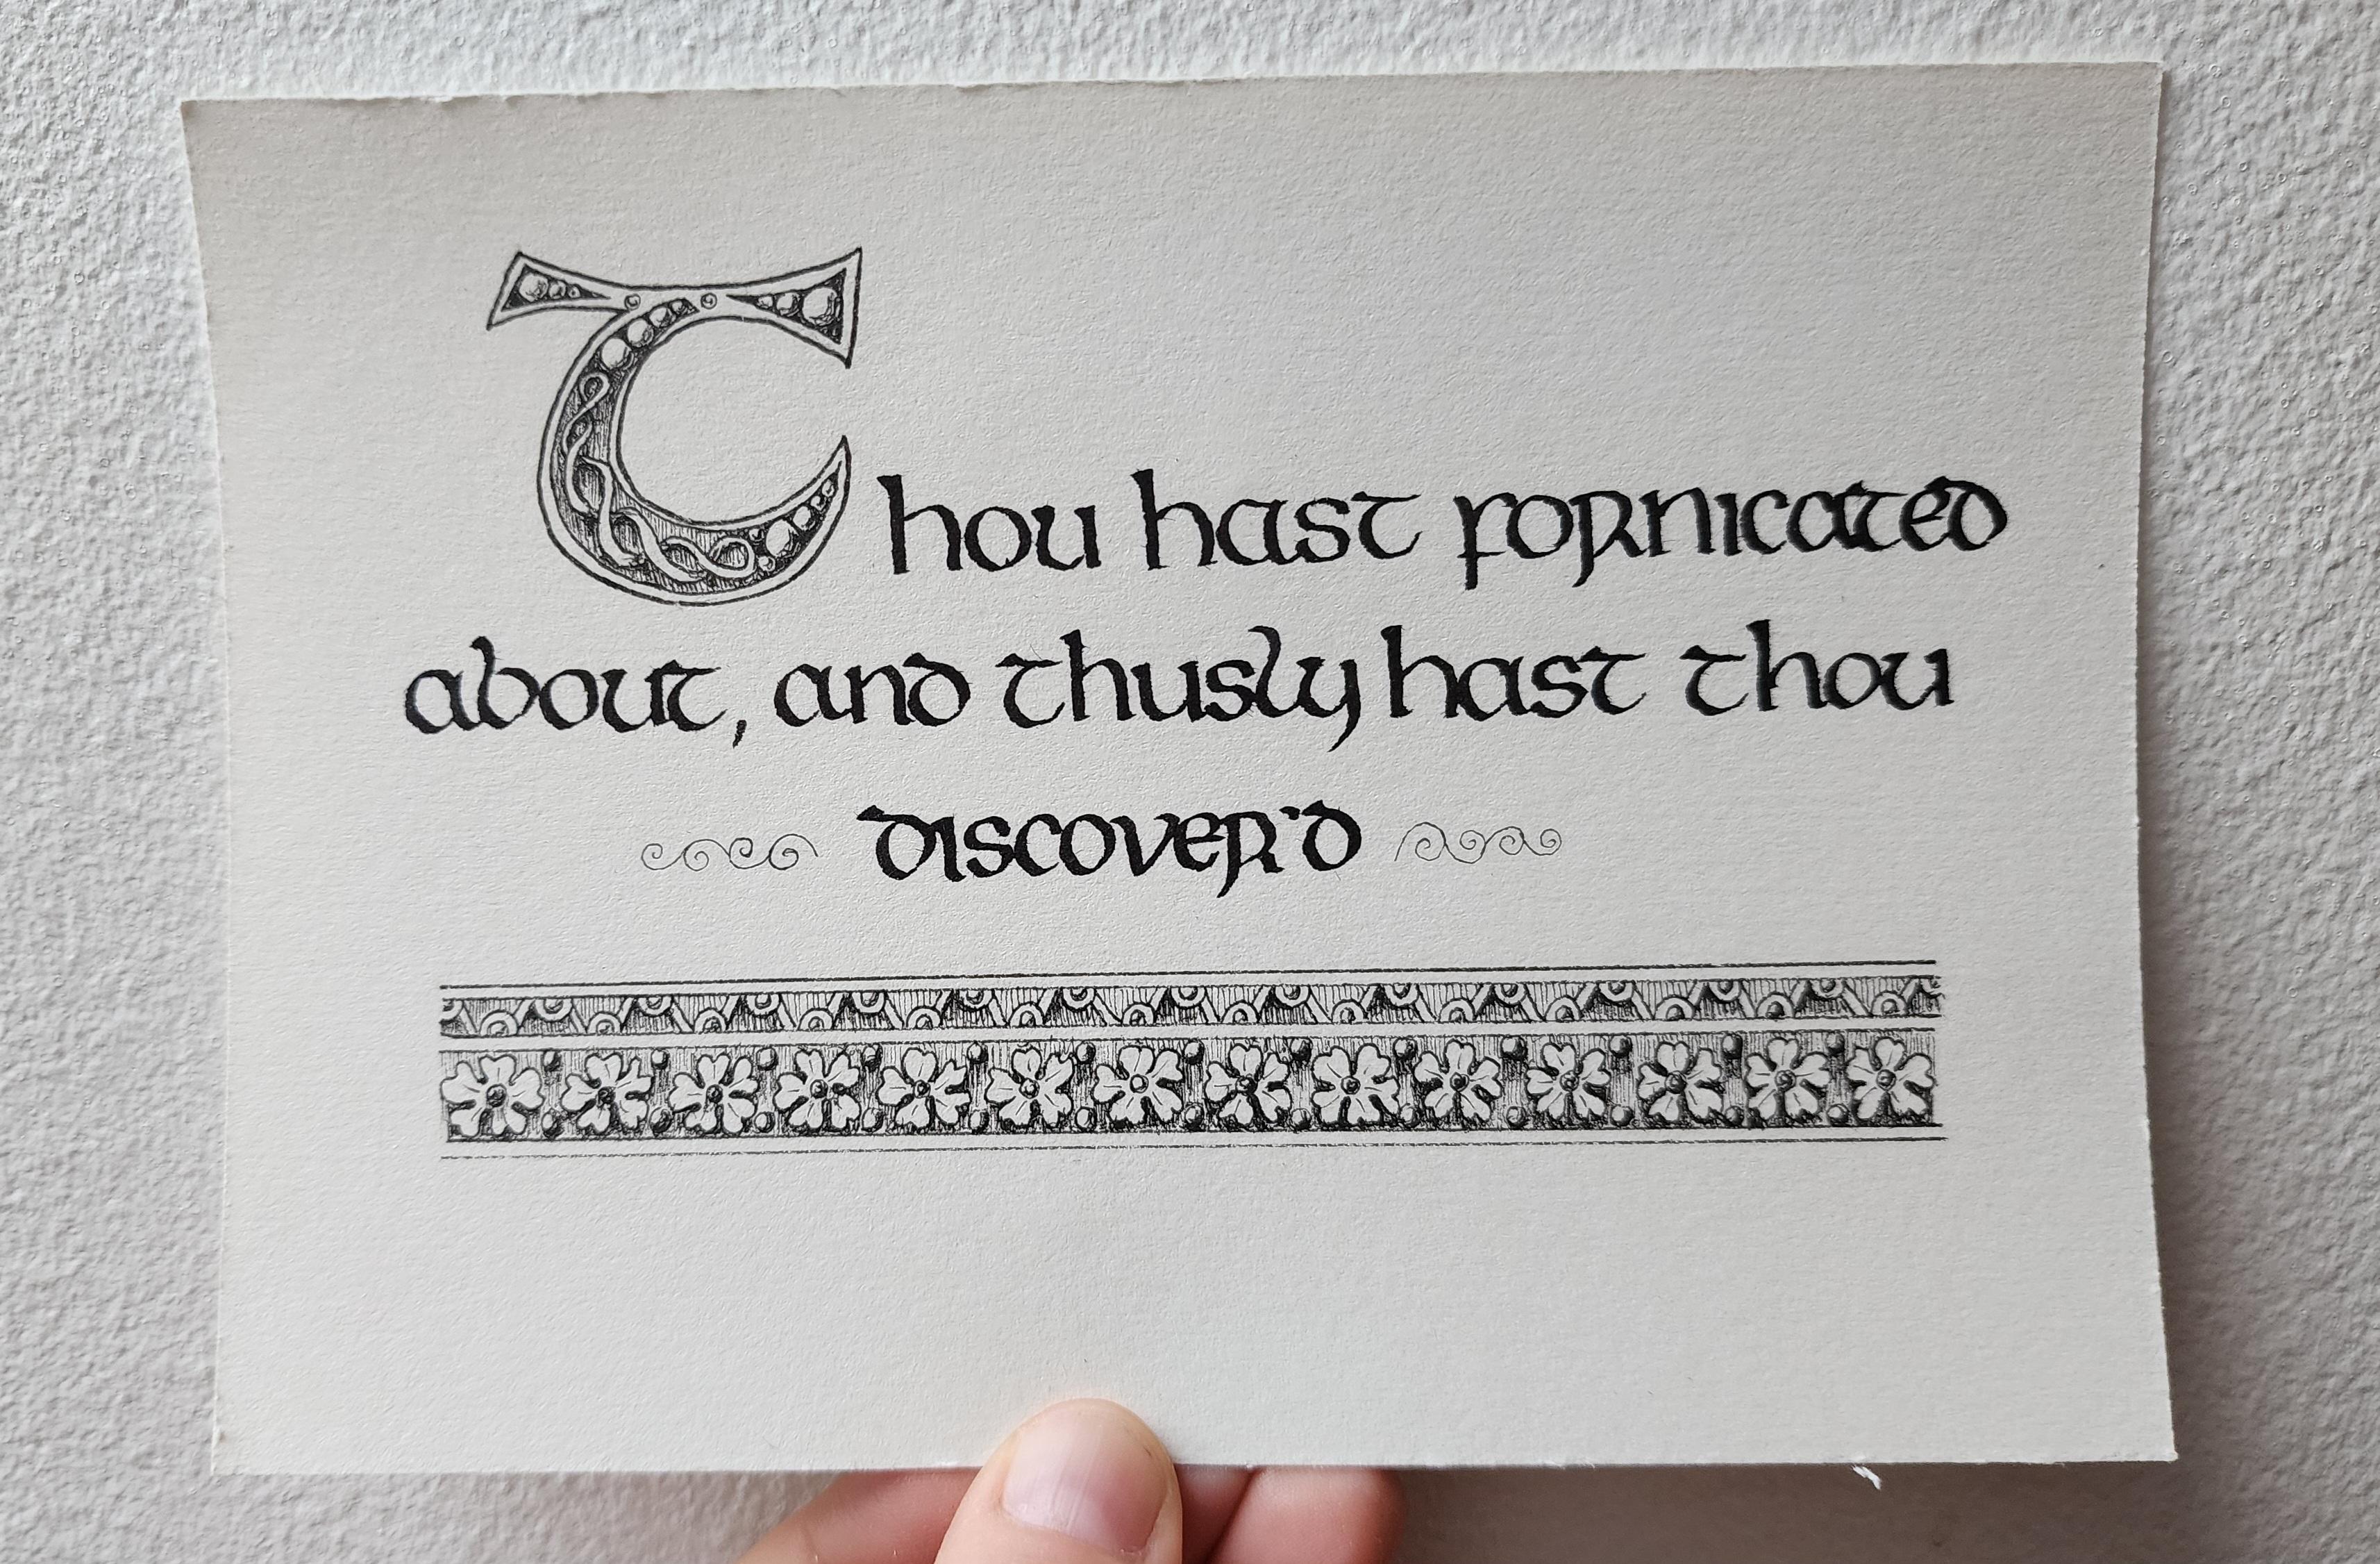 Thou hast fornicated
about, and thusly hast thou
discover'd